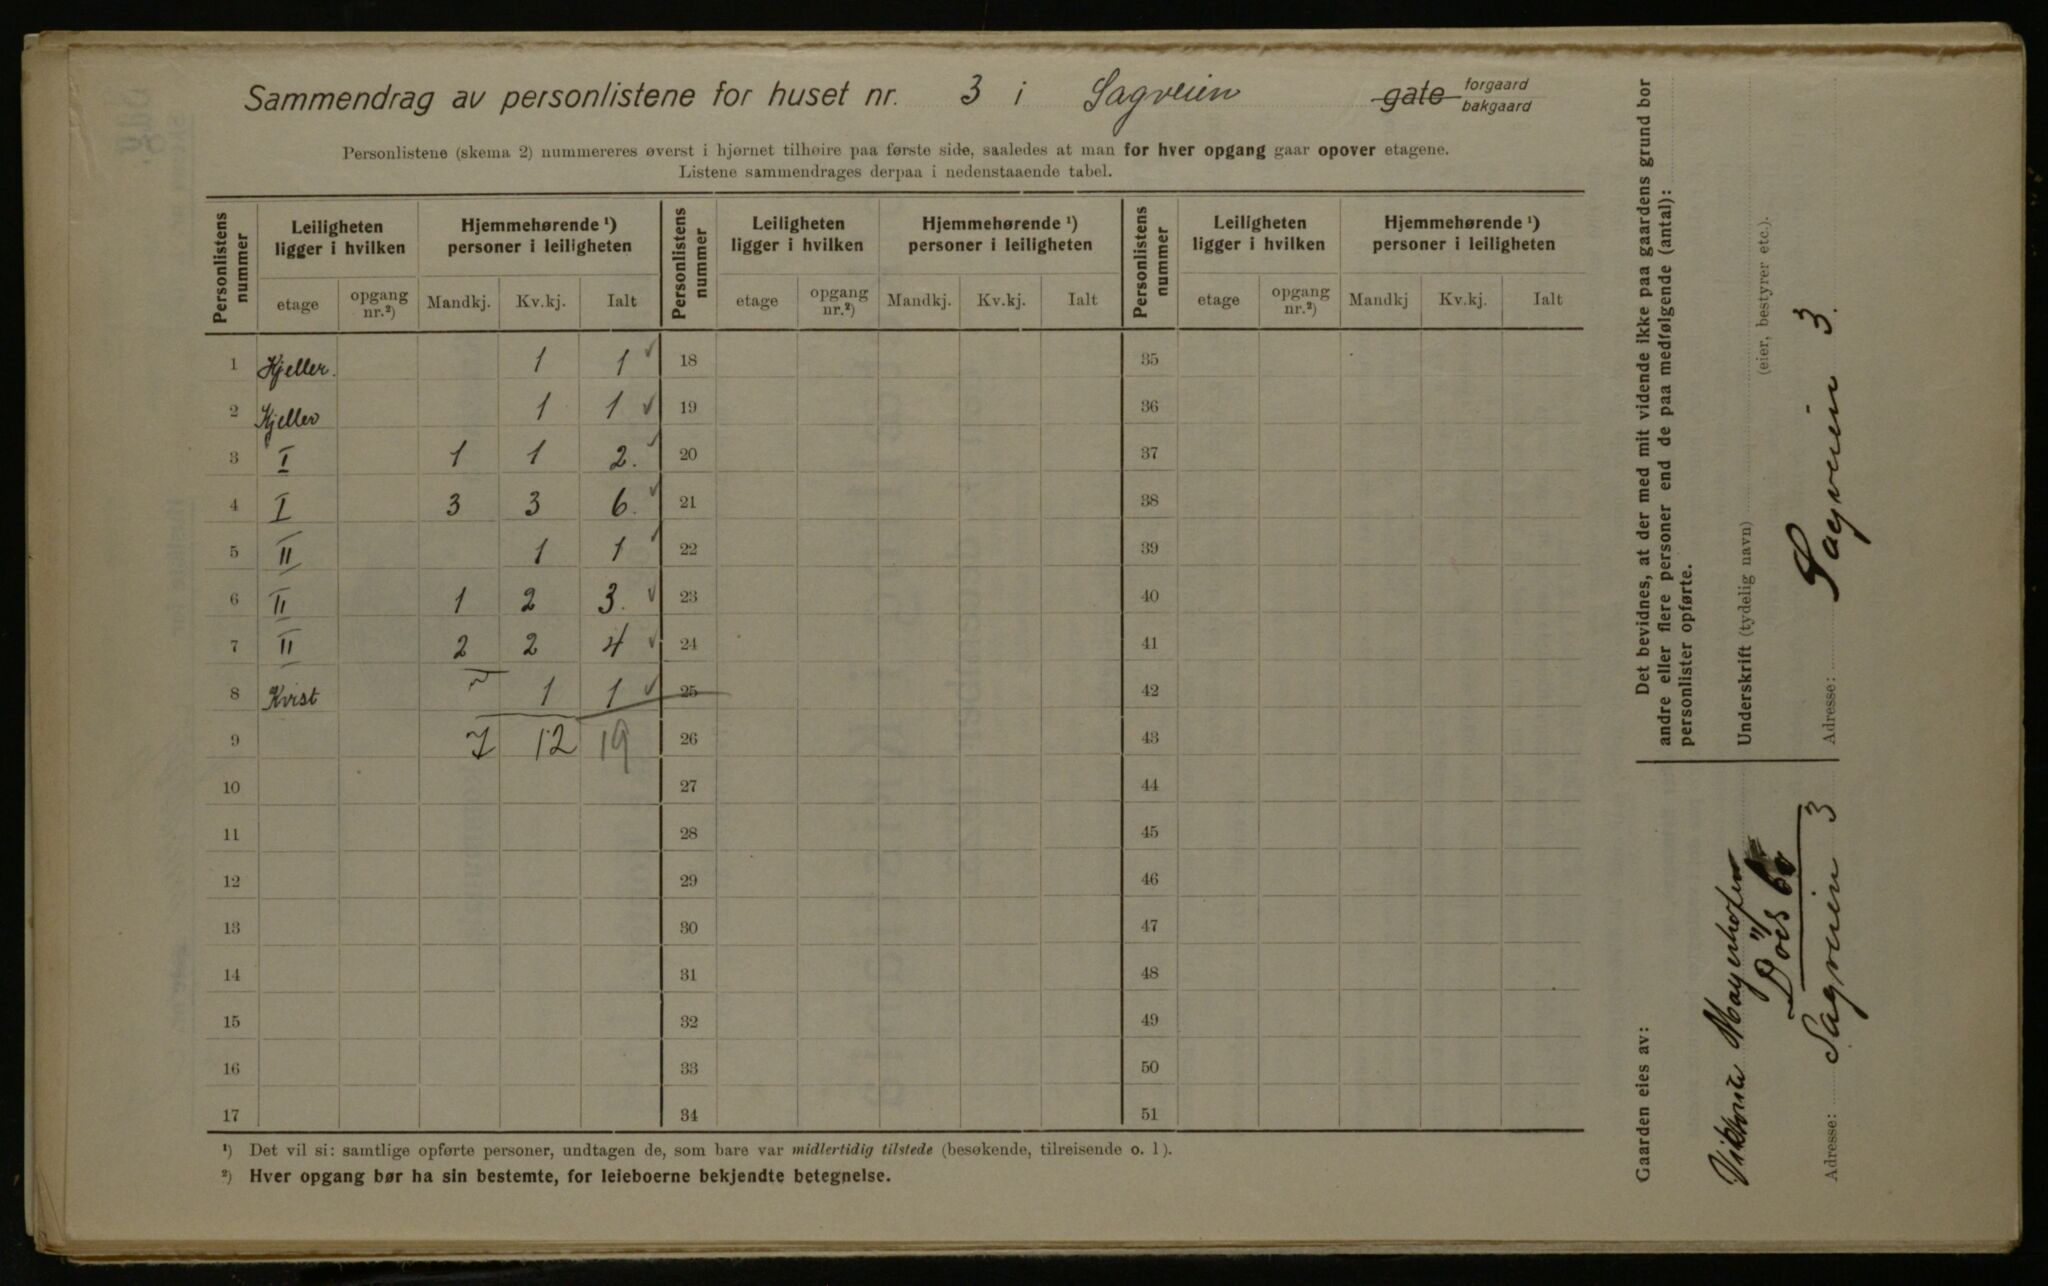 Sammendrag av personlistene for huset nr. 3 i Sagveien gate forgaard bakgaard
Personlistene (skema 2) nummereres øverst i hjørnet tilhøire paa første side, saaledes at man for hver opgang gaar opover etagene.
Listene sammendrages derpaa i nedenstaaende tabel.
Personlistens nummer Leiligheten ligger i hvilken Hjemmehørende ¹) personer i leiligheten Personlistens nummer Leiligheten ligger i hvilken Hjemmehørende ¹) personer i leiligheten Personlistens nummer Leiligheten ligger i hvilken Hjemmehørende ¹) personer i leiligheten
etage opgang nr.²) Mandkj. Kv.kj. Ialt etage opgang nr.²) Mandkj. Kv.kj. Ialt etage opgang nr.²) Mandkj Kv.kj. Ialt
1 Kjeller. 1 1 18 35
2 Kjeller 1 1 19 36
3 I 1 1 2. 20 37
4 I 3 3 6. 21 38
5 II 1 1 22 39
6 II 1 2 3. 23 40
7 II 2 2 4 24 41
8 Kvist 1 1 25 42
9 7 12 19 26 43
10 27 44
11 28 45
12 29 46
13 30 47
14 31 48
15 32 49
16 33 50
17 34 51
¹) Det vil si: samtlige opførte personer, undtagen de, som bare var midlertidig tilstede (besøkende, tilreisende o. l).
²) Hver opgang bør ha sin bestemte, for leieboerne bekjendte betegnelse.
Det bevidnes, at der med mit vidende ikke paa gaardens grund bor
andre eller flere personer end de paa medfølgende (antal):
personlister opførte.
Underskrift (tydelig navn)
(eier, bestyrer etc.).
Adresse: Sagveien 3.
Gaarden eies av:
Mayerhofen
Adresse: Sagveien 3